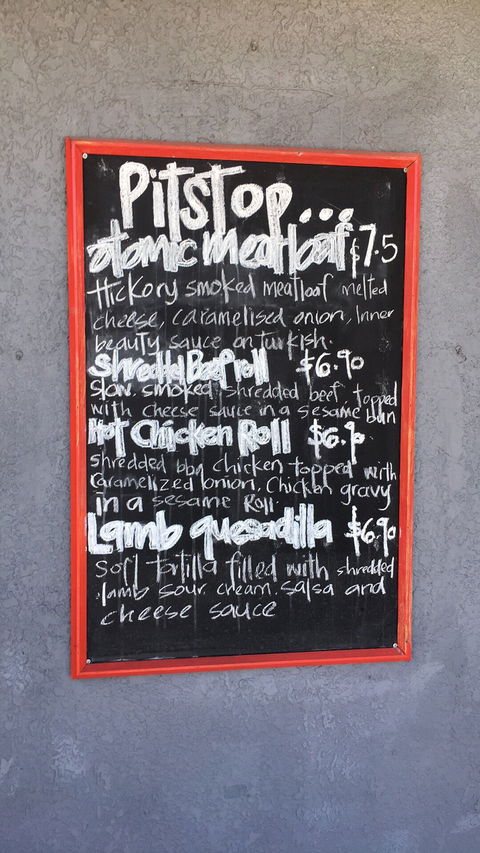 Pitstop...
atomic meatloaf $7.5
Hickory smoked meatloaf melted
cheese, caramelised onion, Inner
beauty sauce on turkish.
Shredded Beef roll $6.90
Slow smoked shredded beef, topped
with cheese sauce in a sesame bun
Hot Chicken Roll $6.90
shredded bbq chicken topped with
Caramelized onion, Chicken gravy
in a sesame Roll.
Lamb quesadilla $6.90
Soft tortilla filled with shredded
lamb sour cream. salsa and
cheese sauce